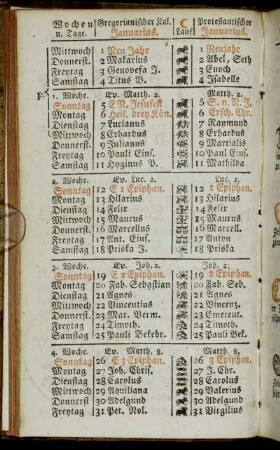 Wochen u. Tage. Gregorianischer Kal. Januarius. ☾ Lauf Protestantischer Januarius.
Mittwoch 1 Neu Jahr 1 Neujahr
Donnerst. 2 Makarius 2 Abel, Seth
Freytag 3 Genovefa J. 3 Enoch
Samstag 4 Titus B. 4 Isabelle
1. Woche. Ev. Matth. 2. Matth. 2.
Sonntag 5 5 S. n. N. J.
Montag 6 Heil. drey Kön. 6 Ersch. Chr.
Dienstag 7 Lucianus 7 Raymund
Mittwoch 8 Erhardus 8 Erhardus
Donnerst. 9 Julianus 9 Martialis
Freytag 10 Pauli Einf. 10 Paul Einf.
Samstag 11 Hyginus B. 11 Mathilda
2. Woche. Ev. Luc. 2. Luc. 2.
Sonntag 12 E 1 Epiphan. 12 1 Epiphan.
Montag 13 Hilarius 13 Hilarius
Dienstag 14 Felix 14 Felix
Mittwoch 15 Maurus 15 Maurus
Donnerst. 16 Marcellus 16 Marcell.
Freytag 17 Ant. Einf. 17 Anton
Samstag 18 Priska J. 18 Priska
3. Woche. Ev. Joh. 2. Joh. 2.
Sonntag 19 E 2 Epiphan. 19 2 Epiphan.
Montag 20 Fab. Sebastian 20 Fab. Seb.
Dienstag 21 Agnes 21 Agnes
Mittwoch 22 Vincentius 22 Vincenz.
Donnerst. 23 Mar. Verm. 23 Emerent.
Freytag 24 Timoth. 24 Timoth.
Samstag 25 Pauli Bekehr. 25 Pauli Bek.
4. Woche. Ev. Matth. 8. Matth. 8.
Sonntag 26 E 3 Epiphan. 26 3 Epiphan.
Montag 27 Joh. Chris. 27 J. Chr.
Dienstag 28 Carolus 28 Carolus
Mittwoch 29 Aquilina 29 Valerius
Donnerst. 30 Adelgund 30 Adelgund
Freytag 31 Pet. Nol. 31 Virgilius